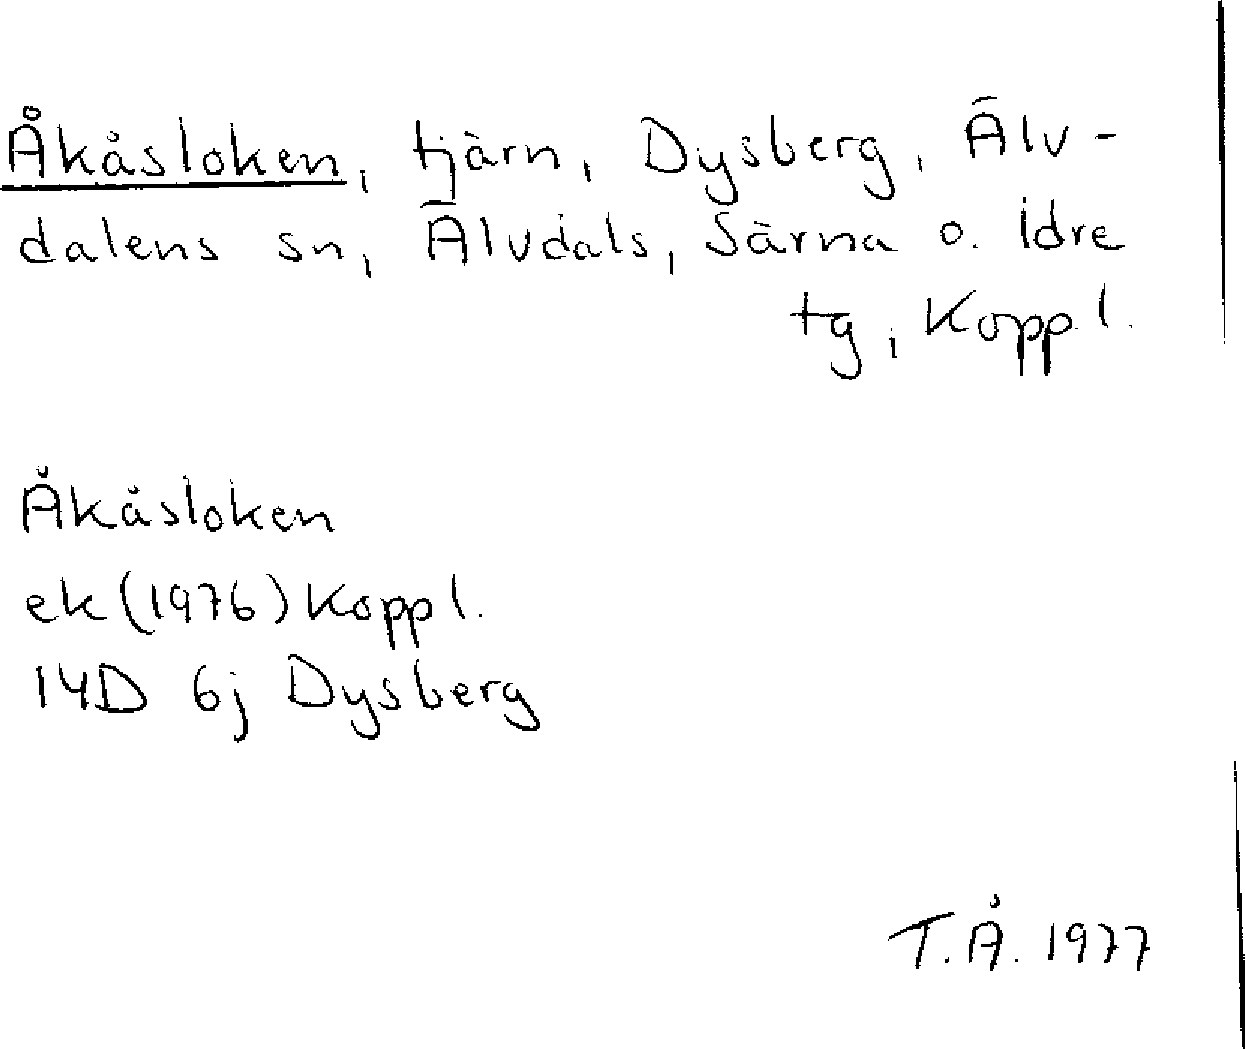 Åkåsloken, tjärn, Dysberg, Älv-
dalens sn, Älvdals, Särna o. Idre
tg, Koppl.
Åkåsloken
ek (1976) Koppl.
14D 6j Dysberg
T.Å. 1977